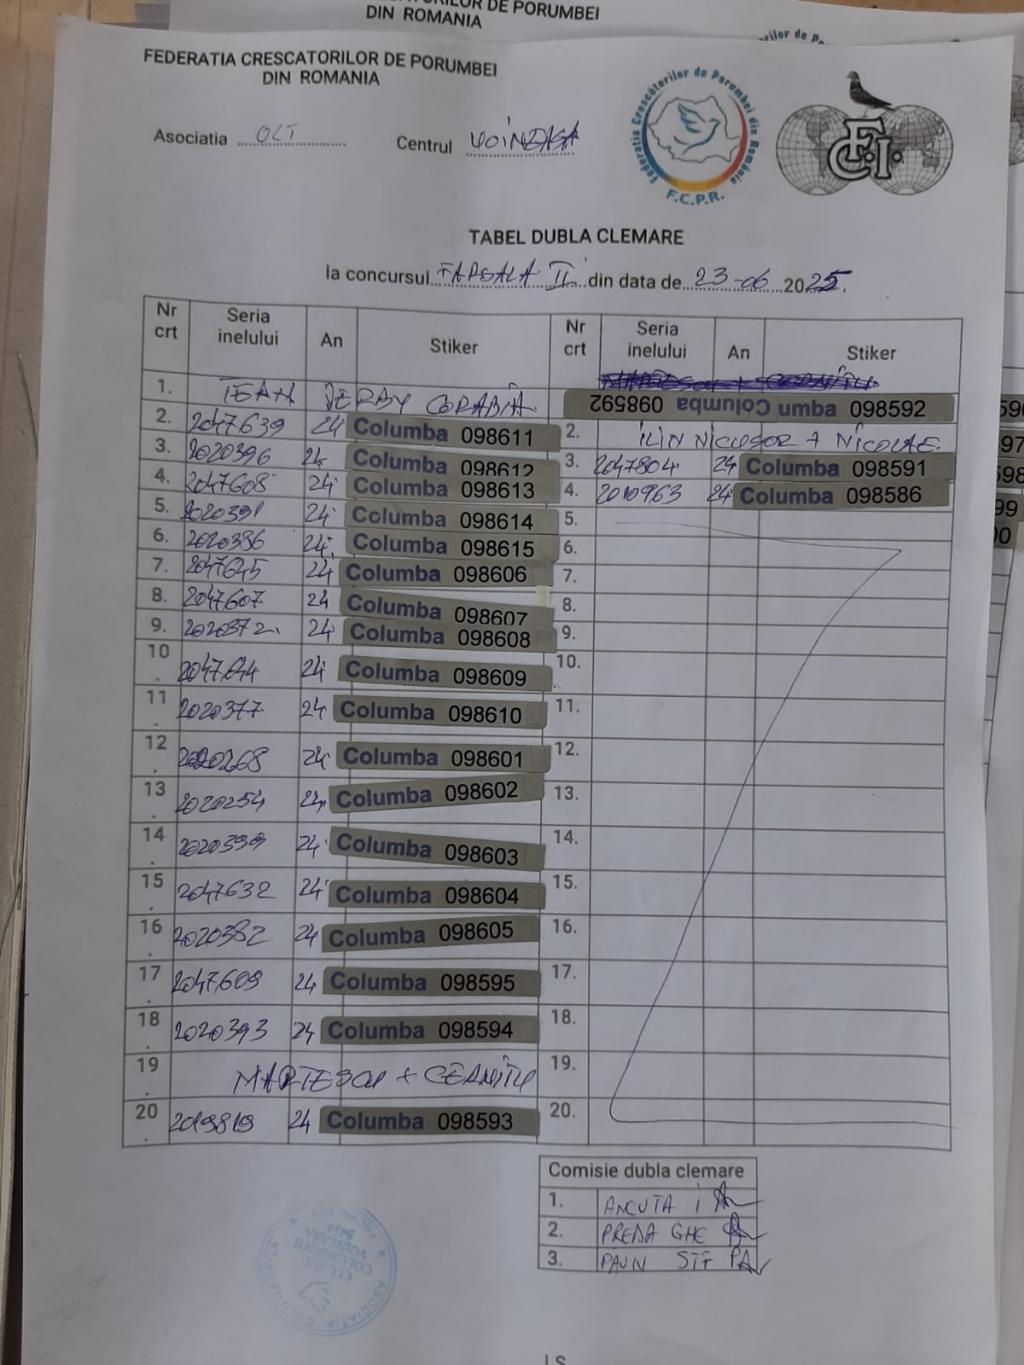 DIN ROMANIA
FEDERATIA CRESCATORILOR DE PORUMBEI
DIN ROMANIA
Asociatia OLT Centrul
Federatia Crescătorilor de Porumbei din România
F.C.P.R.
F.C.I.
TABEL DUBLA CLEMARE
la concursul II din data de 23-06 2025.
Nr crt Seria inelului An Stiker Nr crt Seria inelului An Stiker
1. TEAM DERBY CORABIA Columba 098592 Columba 098592
2. 2047639 24 Columba 098611 2. ILIN NICUSOR + NICOLAE
3. 2020396 24 Columba 098612 3. 2047804 24 Columba 098591
4. 2047608 24 Columba 098613 4. 2010963 24 Columba 098586
5. 2020391 24 Columba 098614 5.
6. 2020386 24 Columba 098615 6.
7. 2047645 24 Columba 098606 7.
8. 2047607 24 Columba 098607 8.
9. 2020372 24 Columba 098608 9.
10. 2047644 24 Columba 098609 10.
11. 2020377 24 Columba 098610 11.
12. 2020268 24 Columba 098601 12.
13. 2020254 24 Columba 098602 13.
14. 2020399 24 Columba 098603 14.
15. 2047632 24 Columba 098604 15.
16. 2020382 24 Columba 098605 16.
17. 2047609 24 Columba 098595 17.
18. 2020393 24 Columba 098594 18.
19. 19.
20. 2019819 24 Columba 098593 20.
Comisie dubla clemare
1. ANCUTA I
2. PREDA GHE
3. PAUN STF